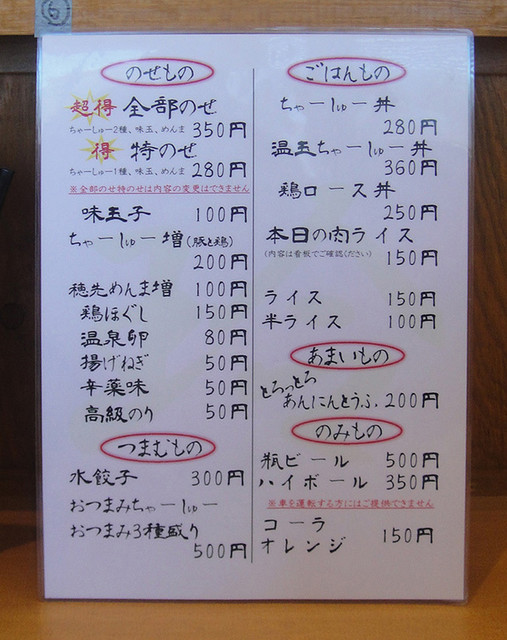 ⑥
のせもの
超得 全部のせ
ちゃーしゅー2種、味玉、めんま 350円
得 特のせ
ちゃーしゅー1種、味玉、めんま 280円
※全部のせ特のせは内容の変更はできません
味玉子 100円
ちゃーしゅー増(豚と鶏)
200円
穂先めんま増 100円
鶏ほぐし 150円
温泉卵 80円
揚げねぎ 50円
辛薬味 50円
高級のり 50円
つまむもの
水餃子 300円
おつまみちゃーしゅー
おつまみ3種盛り
500円
ごはんもの
ちゃーしゅー丼
280円
温玉ちゃーしゅー丼
360円
鶏ロース丼
250円
本日の肉ライス
(内容は看板でご確認ください) 150円
ライス 150円
半ライス 100円
あまいもの
とろっとろ
あんにんとうふ 200円
のみもの
瓶ビール 500円
ハイボール 350円
※車を運転する方にはご提供できません
コーラ
オレンジ 150円